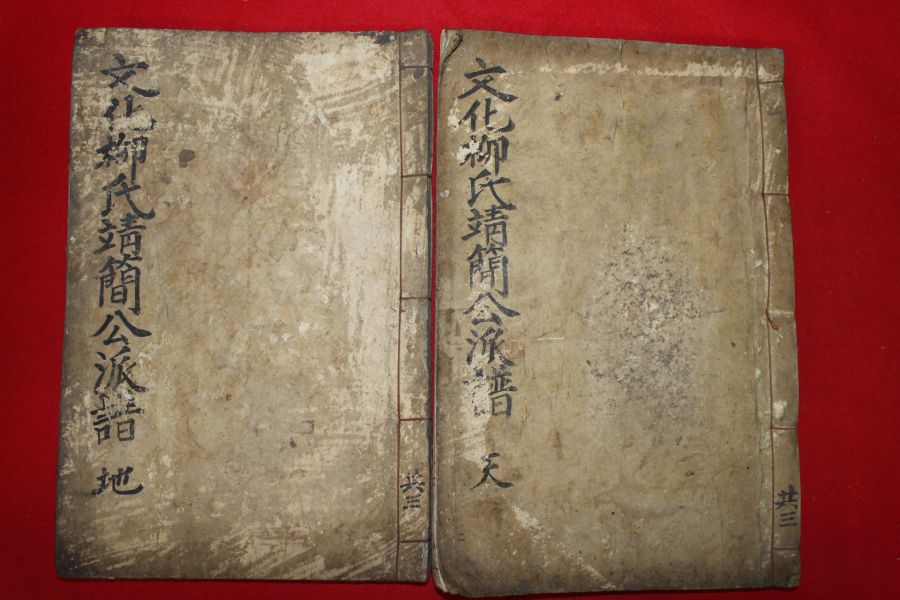 文化柳氏靖簡公派譜 天
共三
文化柳氏靖簡公派譜 地
共三